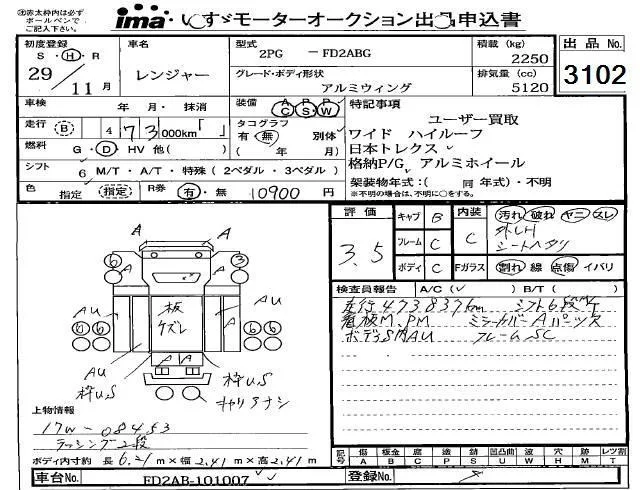 ※赤太枠内は必ず
ボールペンで
ご記入下さい。
ima いすゞモーターオークション出品申込書
初度登録 S・H・R 29/11月
車名 レンジャー
型式 2PG - FD2ABG
積載 (kg) 2250
出品No. 3102
グレード・ボディ形状 アルミウィング
排気量 (cc) 5120
車検 年 月・抹消
装備 A/C P/S P/W
特記事項
走行 (B) 473 000km「 」
タコグラフ 有・無 別体 ( 年 月)
ユーザー買取
ワイド ハイルーフ
燃料 G・D・HV 他( )
日本トレクス
シフト 6 M/T・A/T・特殊(2ペダル・3ペダル)
格納P/G アルミホイール
色 指定 (指定) R券 有・無 10900円
架装物年式:( 同 年式)・不明
※不明の場合は、不明に○をする。
評価 3.5
キャブ B
フレーム C
ボディ C
内装 C
汚れ 破れ ヤニ スレ
シートヘタリ
Fガラス 割れ 線 点傷 イバリ
検査員報告 A/C(✓) B/T( )
走行473837km シフト6段
看板M、PM ミラーカバーAパーツズ
ボディS内AU フレームSC
A
A
A
6
3
板
ケズレ
AU
AU
6 6
6 6
A A
AU
枠U.S
枠U.S
キャリアナシ
上物情報
17W-08453
ラッシング2段
ボディ内寸約 長 6.21 m×幅 2.41 m×高 2.41 m
記号 傷A 板金B 腐C 塗P 錆S 凹凸曲U 波W 穴H 跡M レツ割T
車台No. FD2AB-101007
登録No.